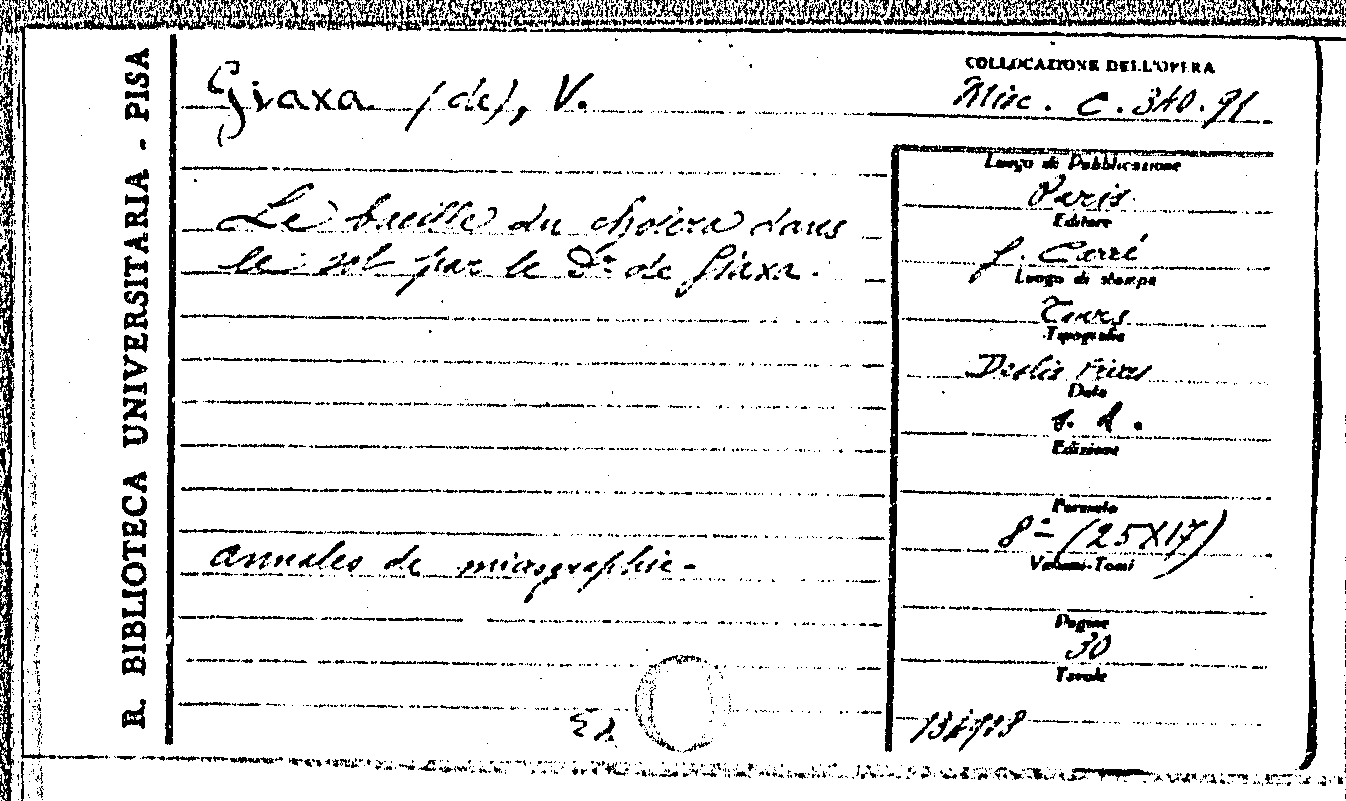 R. BIBLIOTECA UNIVERSITARIA - PISA
Giaxa (de), V.
COLLOCAZIONE DELL'OPERA
Misc. C. 340. 91
Le bacille du choléra dans
le sol par le Dr de Giaxa.
annales de micrographie-
Luogo di Pubblicazione
Paris
Editore
G. Carré
Luogo di stampa
Tours
Tipografia
Deslis Frères
Data
s. d.
Edizione
Formato
8º (25X17)
Volumi-Tomi
Pagine
30
Tavole